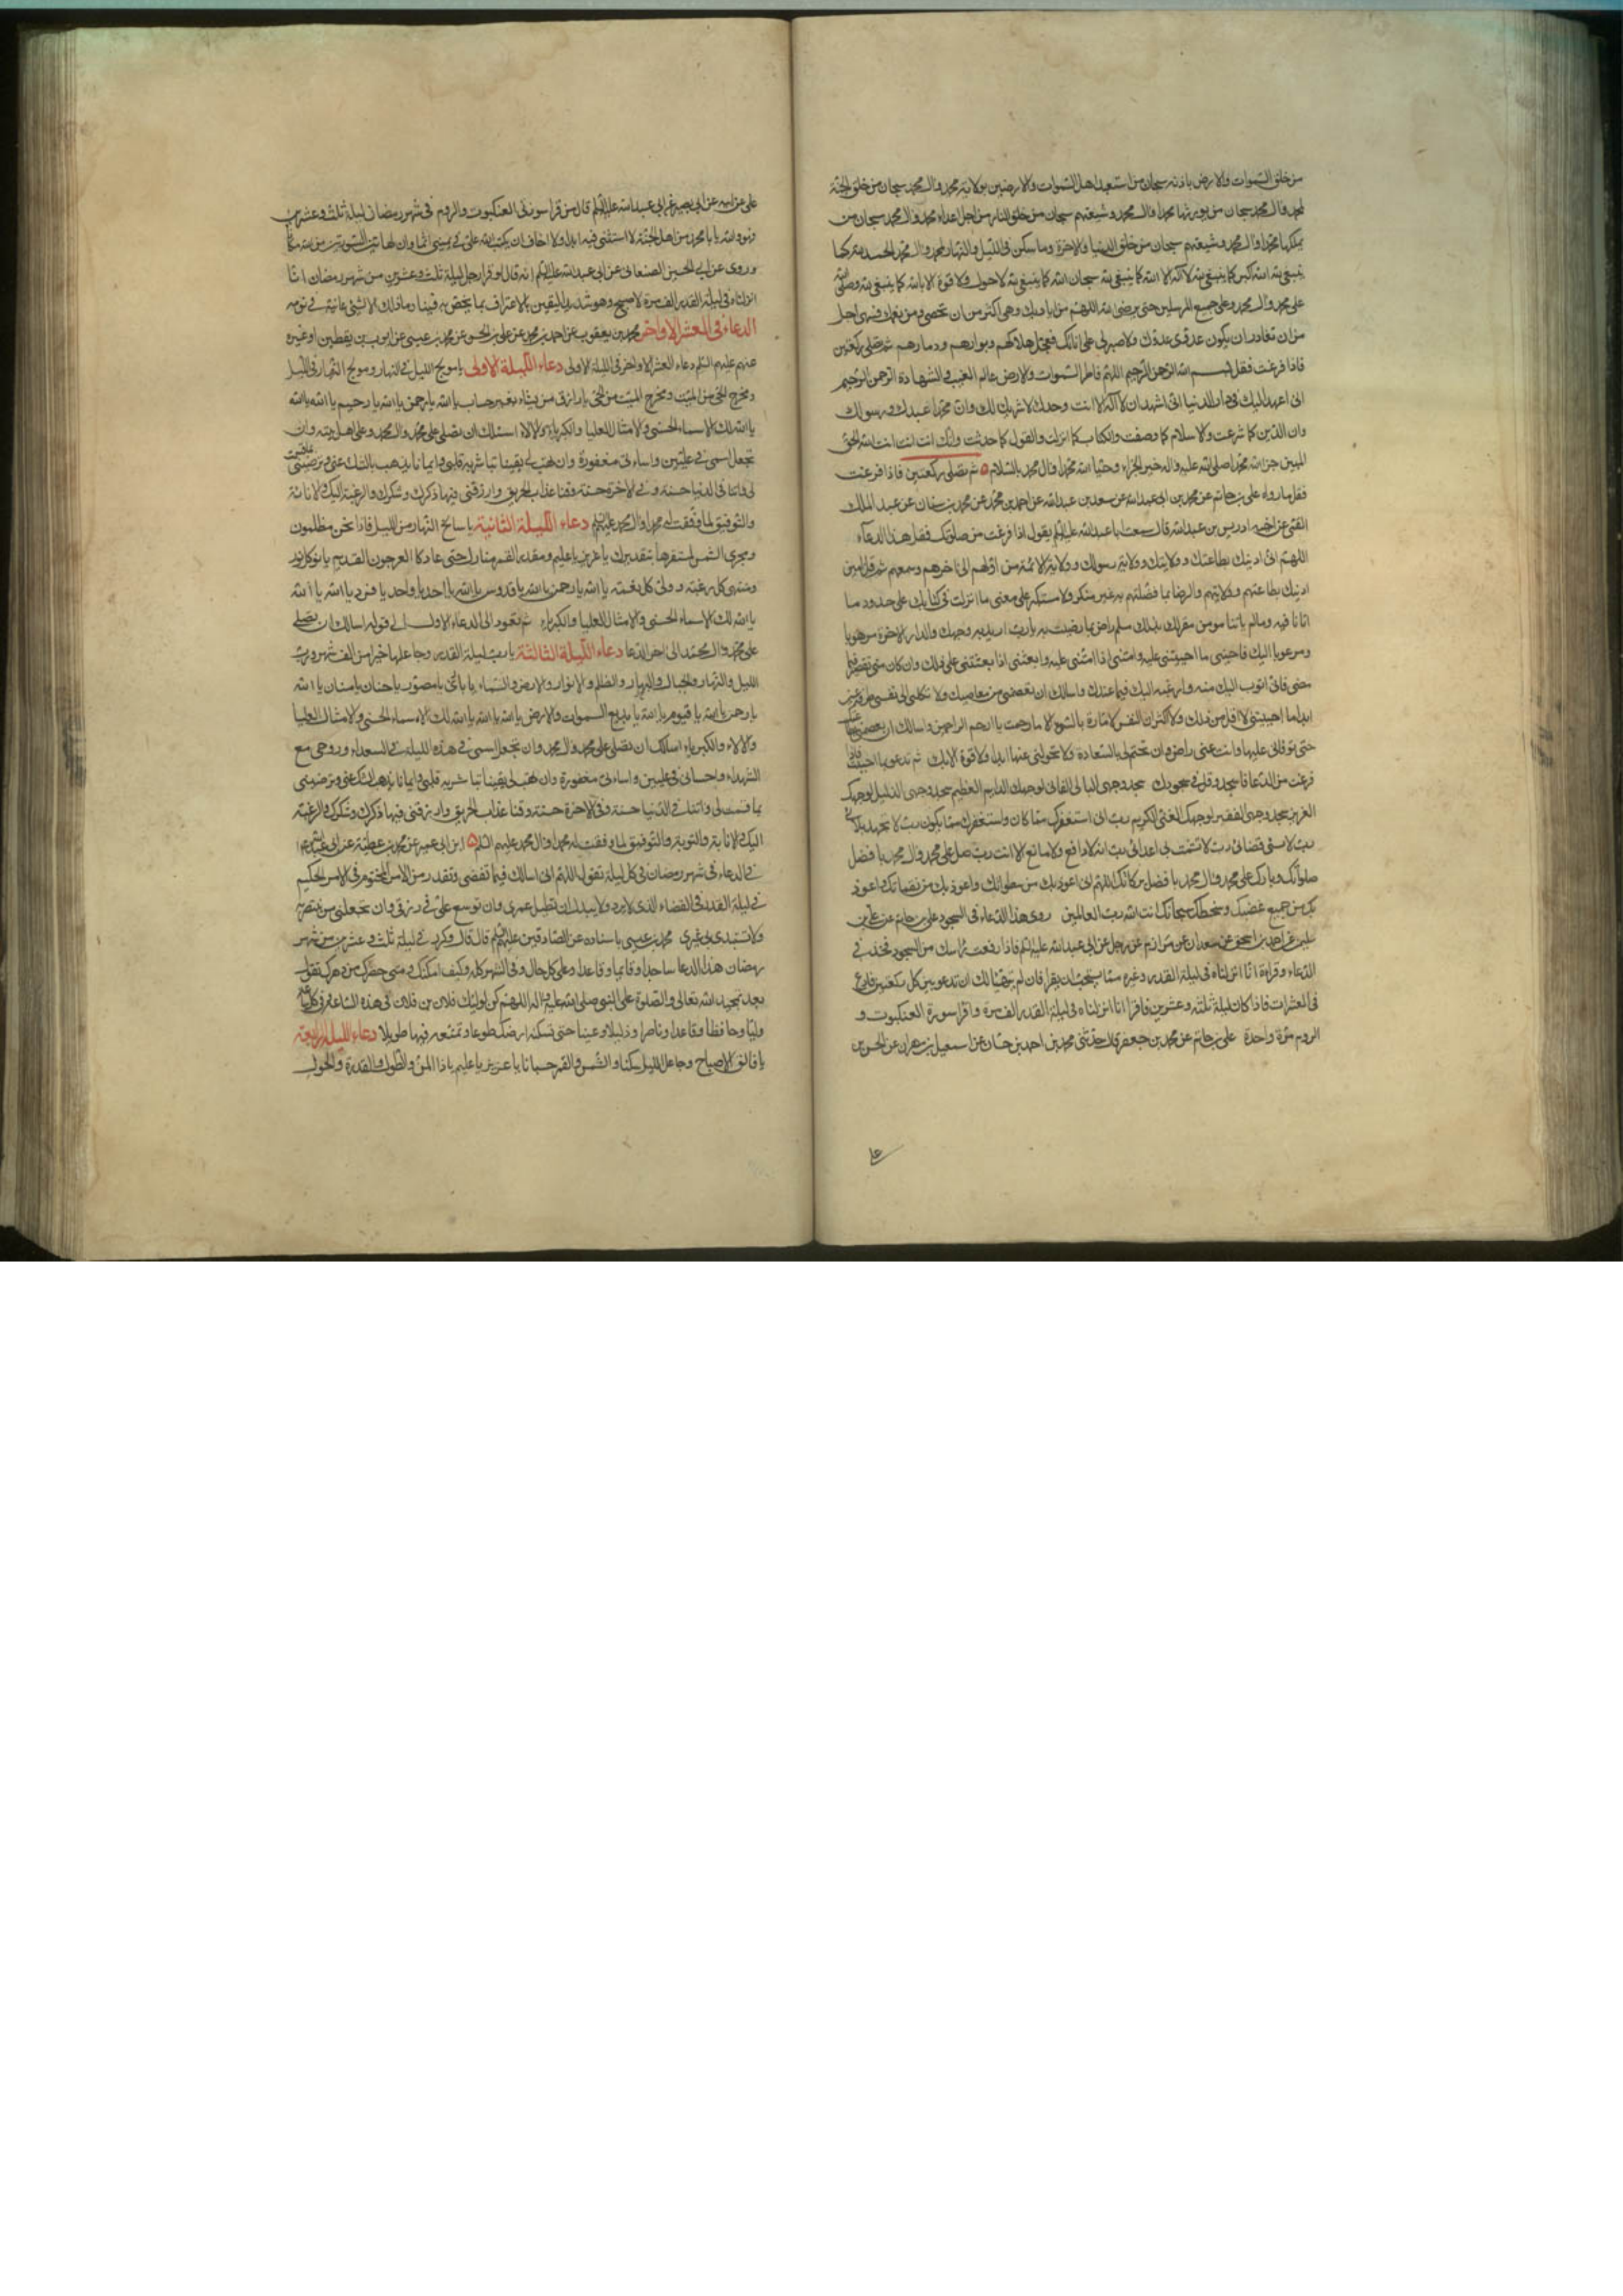 من خلق السموات والارض باذنه سبحان من استعبد اهل السموات والارضين بولاية محمد وال محمد سبحان من خلق الجنة
لمحمد وال محمد سبحان من يورثها محمدا وال محمد وشيعتهم سبحان من خلق النار من اجل اعداء محمد وال محمد سبحان من
يملكها محمدا وال محمد وشيعتهم سبحان من خلق الدنيا والاخرة وما سكن فى الليل والنهار لمحمد وال محمد الحمد لله كما
ينبغى لله الله اكبر كما ينبغى لله لا اله الا الله كما ينبغى لله سبحان الله كما ينبغى لله لا حول ولا قوة الا بالله كما ينبغى لله وصلى الله
على محمد وال محمد وعلى جميع المرسلين حتى يرضى الله اللهم من اياديك وهى اكثر من ان تحصى ومن نعمك وهى اجل
من ان تغادر ان يكون عدوى عدوك ولا صبر لى على اناتك فعجل هلاكهم وبوارهم ودمارهم ثم تصلى ركعتين
فاذا فرغت فقل بسم الله الرحمن الرحيم اللهم فاطر السموات والارض عالم الغيب والشهادة الرحمن الرحيم
انى اعهد اليك فى دار الدنيا انى اشهد ان لا اله الا انت وحدك لا شريك لك وان محمدا عبدك ورسولك
وان الدين كما شرعت والاسلام كما وصفت والكتاب كما انزلت والقول كما حدثت وانك انت انت انت الله الحق
المبين جزى الله محمدا صلى الله عليه واله خير الجزاء وحيا الله محمدا وال محمد بالسلام ثم تصلى ركعتين فاذا فرغت
فقل ما رواه على بن حاتم عن محمد بن ابى عبدالله عن سعد بن عبدالله عن احمد بن محمد عن محمد بن سنان عن عبد الملك
القمى عن اخيه ادريس بن عبدالله قال سمعت ابا عبدالله عليه السلام يقول اذا فرغت من صلوتك فقل هذا الدعاء
اللهم انى ادينك بطاعتك وولايتك وولاية رسولك وولاية الائمة من اولهم الى اخرهم وسمهم ثم قل امين
ادينك بطاعتهم وولايتهم والرضا بما فضلتهم به غير متكبر ولا مستكبر على معنى ما انزلت فى كتابك على حدود ما
اتانا فيه وما لم ياتنا مومن مقر لك بذلك مسلم راض بما رضيت به يا رب اريد به وجهك والدار الاخرة مرهوبا
ومرغوبا اليك فاحينى ما احييتنى عليه وامتنى اذا امتنى عليه وابعثنى اذا بعثتنى على ذلك وان كان منى تقصير فيما
مضى فانى اتوب اليك منه وارغب اليك فيما عندك واسالك ان تعصمنى من معاصيك ولا تكلنى الى نفسى طرفة عين
ابدا ما احييتنى لا اقل من ذلك ولا اكثر ان النفس لامارة بالسوء الا ما رحمت يا ارحم الراحمين واسالك ان تعصمنى بطاعتك
حتى توفانى عليها وانت عنى راض وان تختم لى بالسعادة ولا تحولنى عنها ابدا ولا قوة الا بك ثم تدعو بما احببت فاذا
فرغت من الدعا فاسجد وقل فى سجودك سجد وجهى البالى الفانى لوجهك الدايم العظيم سجد وجهى الذليل لوجهك
العزيز سجد وجهى الفقير لوجهك الغنى الكريم رب انى استغفرك مما كان واستغفرك مما يكون رب لا تجهد بلائى
رب لا تسئ قضائى رب لا تشمت بى اعدائى رب انه لا دافع ولا مانع الا انت رب صل على محمد وال محمد بافضل
صلواتك وبارك على محمد وال محمد بافضل بركاتك اللهم انى اعوذ بك من سطواتك واعوذ بك من نقماتك واعوذ
بك من جميع غضبك وسخطك سبحانك انت الله رب العالمين روى هذا الدعاء فى السجود على بن حاتم عن على بن
سليمن عن احمد بن اسحق عن سعدان عن مرازم عن رجل عن ابى عبدالله عليه السلام فاذا رفعت راسك من السجود فخذ فى
الدعاء وقراءة انا انزلناه فى ليلة القدر وغيره مما يستحب ان يقرا فان لم يتهيا لك ان تدعو بين كل ركعتين فادع
فى العشرات فاذا كان ليلة ثلثة وعشرين فاقرا انا انزلناه فى ليلة القدر الف مرة واقرا سورة العنكبوت و
الروم مرة واحدة على بن حاتم عن محمد بن جعفر قال حدثنى محمد بن احمد بن حسان عن اسمعيل بن مهران عن الحسن بن
على عن ابيه عن ابى بصير عن ابى عبدالله عليه السلام قال من قرا سورتى العنكبوت والروم فى شهر رمضان ليلة ثلث وعشرين
فهو والله يا با محمد من اهل الجنة لا استثنى فيه ابدا ولا اخاف ان يكتب الله على فى يمينى اثما وان لهاتين السورتين من الله مكانا
وروى عن ابى الحسين الصنعانى عن ابى عبدالله عليه السلام انه قال لو قرا رجل ليلة ثلث وعشرين من شهر رمضان انا
انزلناه فى ليلة القدر الف مرة لاصبح وهو شديد اليقين بالاعتراف بما يختص به فينا وما ذلك الا لشئ عاينه فى نومه
الدعاء فى العشر الاواخر محمد بن يعقوب عن احمد بن محمد عن على بن الحسن عن محمد بن عيسى عن ايوب بن يقطين او غيره
عنهم عليهم السلم دعاء العشر الاواخر فى الليلة الاولى دعاء الليلة الاولى يا مولج الليل فى النهار ومولج النهار فى الليل
ومخرج الحى من الميت ومخرج الميت من الحى يا رازق من يشاء بغير حساب يا الله يا رحمن يا الله يا رحيم يا الله يا الله
يا الله لك الاسماء الحسنى والامثال العليا والكبرياء والالاء اسئلك ان تصلى على محمد وال محمد وعلى اهل بيته وان
تجعل اسمى فى عليين واساءتى مغفورة وان تهب لى يقينا تباشر به قلبى وايمانا يذهب بالشك عنى وترضينى بما قسمت
لى واتنا فى الدنيا حسنة وفى الاخرة حسنة وقنا عذاب الحريق وارزقنى فيها ذكرك وشكرك والرغبة اليك والانابة
والتوفيق لما وفقت له محمدا وال محمد عليهم السلم دعاء الليلة الثانية يا سالخ النهار من الليل فاذا نحن مظلمون
ومجرى الشمس لمستقرها بتقديرك يا عزيز يا عليم ومقدر القمر منازل حتى عاد كالعرجون القديم يا نور كل نور
ومنتهى كل رغبة وولى كل نعمة يا الله يا رحمن يا الله يا قدوس يا الله يا احد يا واحد يا فرد يا الله يا الله
يا الله لك الاسماء الحسنى والامثال العليا والكبرياء ثم تعود الى الدعاء الاول الى قوله اسالك ان تصلى
على محمد وال محمد الى اخر الدعا دعاء الليلة الثالثة يا رب ليلة القدر وجاعلها خيرا من الف شهر ورب
الليل والنهار والجبال والبحار والظلم والانوار والارض والسماء يا بارئ يا مصور يا حنان يا منان يا الله
يا رحمن يا الله يا قيوم يا الله يا بديع السموات والارض يا الله يا الله يا الله لك الاسماء الحسنى والامثال العليا
والالاء والكبرياء اسالك ان تصلى على محمد وال محمد وان تجعل اسمى فى هذه الليلة فى السعداء وروحى مع
الشهداء واحسانى فى عليين واساءتى مغفورة وان تهب لى يقينا تباشر به قلبى وايمانا يذهب الشك عنى وترضينى
بما قسمت لى واتنا فى الدنيا حسنة وفى الاخرة حسنة وقنا عذاب الحريق وارزقنى فيها ذكرك وشكرك والرغبة
اليك والانابة والتوبة والتوفيق لما وفقت له محمدا وال محمد عليهم السلم ابن ابى عمير عن محمد بن عطية عن ابى عبدالله
فى الدعاء فى شهر رمضان فى كل ليلة تقول اللهم انى اسالك فيما تقضى وتقدر من الامر المحتوم فى الامر الحكيم
فى ليلة القدر فى القضاء الذى لا يرد ولا يبدل ان تطيل عمرى وان توسع على فى رزقى وان تجعلنى ممن تنتصر به
ولا تستبدل بى غيرى محمد بن عيسى باسناده عن الصادقين عليهم السلم قال قال وكرر فى ليلة ثلث وعشرين من شهر
رمضان هذا الدعا ساجدا وقايما وقاعدا وعلى كل حال وفى الشهر كله وكيف امكنك ومتى حضرك من دهرك تقول
بعد تمجيد الله تعالى والصلوة على النبى صلى الله عليه واله اللهم كن لوليك فلان بن فلان فى هذه الساعة وفى كل ساعة
وليا وحافظا وقاعدا وناصرا ودليلا وعينا حتى تسكنه ارضك طوعا وتمتعه فيها طويلا دعاء الليلة الرابعة
يا فالق الاصباح وجاعل الليل سكنا والشمس والقمر حسبانا يا عزيز يا عليم يا ذا المن والطول والقدرة والحول